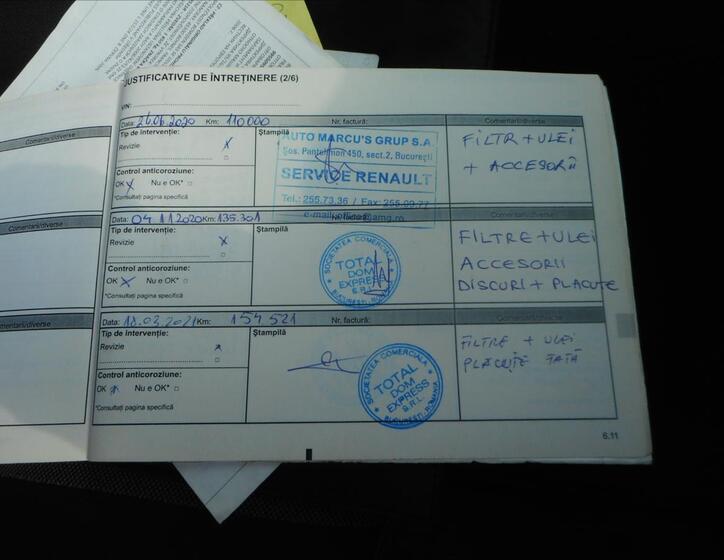 JUSTIFICATIVE DE ÎNTREȚINERE (2/6)
VIN:
Data: 26.06.2020 Km: 110000 Nr. factură: Comentarii/diverse
Tip de intervenție:
Revizie x
Ștampilă
AUTO MARCU'S GRUP S.A.
Șos. Pantelimon 450, sect.2, București
SERVICE RENAULT
Tel.: 255.73.36 / Fax: 255.09.77
FILTR + ULEI
+ ACCESORII
Control anticoroziune:
OK x Nu e OK* □
*Consultați pagina specifică
Comentarii/diverse
Data: 04 11 2020 Km: 135.301 Nr. factură: Comentarii/diverse
Tip de intervenție:
Revizie x
Ștampilă
SOCIETATEA COMERCIALA
TOTAL
DOM
EXPRESS
S.R.L.
BUCUREȘTI-ROMÂNIA
FILTRE + ULEI
ACCESORII
DISCURI + PLACUTE
Control anticoroziune:
OK x Nu e OK* □
*Consultați pagina specifică
Comentarii/diverse
Data: 18.03.2021 Km: 154 521 Nr. factură: Comentarii/diverse
Tip de intervenție:
Revizie x
Ștampilă
SOCIETATEA COMERCIALA
TOTAL
DOM
EXPRESS
S.R.L.
BUCUREȘTI-ROMÂNIA
FILTRE + ULEI
PLACUTE FATĂ
Control anticoroziune:
OK x Nu e OK* □
*Consultați pagina specifică
Comentarii/diverse
6.11